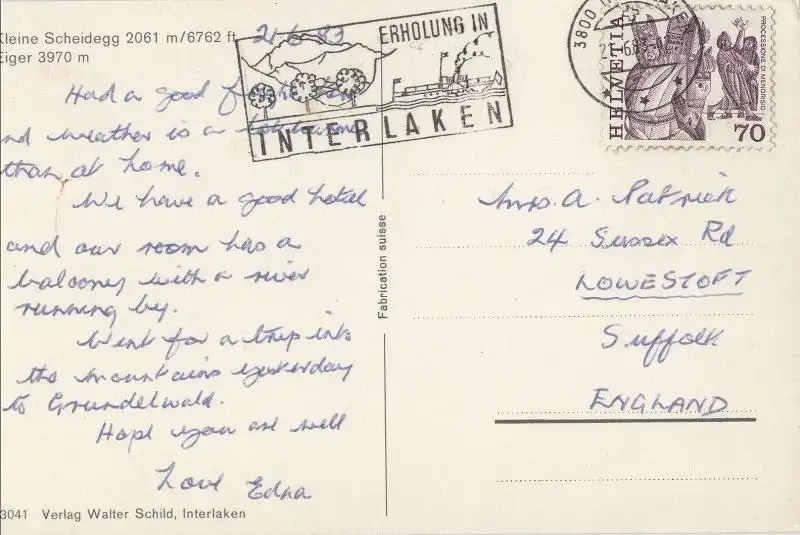 Kleine Scheidegg 2061 m/6762 ft
Eiger 3970 m
21/6/83
Had a good flight
and weather is a lot warmer
than at home.
We have a good hotel
and our room has a
balcony with a river
running by.
Went for a trip into
the mountains yesterday
to Grundelwald.
Hope you are well
Love Edna
3041 Verlag Walter Schild, Interlaken
Fabrication suisse
ERHOLUNG IN
INTERLAKEN
3800 INTERLAKEN
21.6.83
HELVETIA
PROCESSIONE DI MENDRISIO
70
Mrs. A. Patrick
24 Sussex Rd
LOWESTOFT
Suffolk
ENGLAND